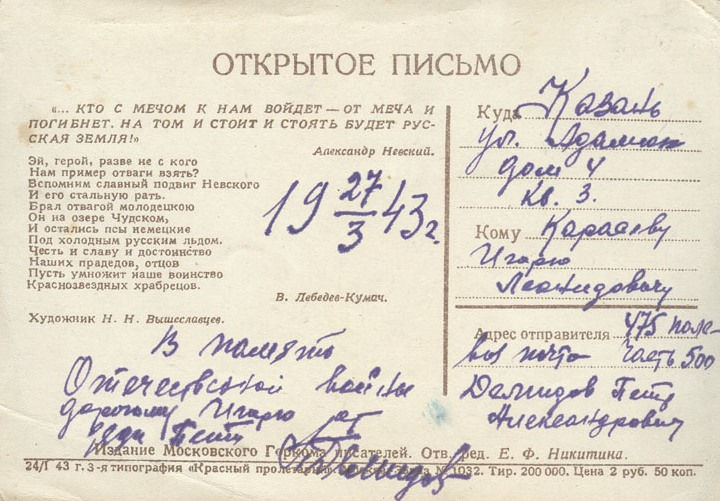 ОТКРЫТОЕ ПИСЬМО
«... КТО С МЕЧОМ К НАМ ВОЙДЕТ — ОТ МЕЧА И
ПОГИБНЕТ. НА ТОМ И СТОИТ И СТОЯТЬ БУДЕТ РУС-
СКАЯ ЗЕМЛЯ!»
Александр Невский.
Эй, герой, разве не с кого
Нам пример отваги взять?
Вспомним славный подвиг Невского
И его стальную рать.
Брал отвагой молодецкою
Он на озере Чудском,
И остались псы немецкие
Под холодным русским льдом.
Честь и славу и достоинство
Наших прадедов, отцов
Пусть умножит наше воинство
Краснозвездных храбрецов.
В. Лебедев-Кумач.
Художник Н. Н. Вышеславцев.
19 27/3 43 г.
В память
Отечественной войны
дорогому Игарю от
дяди
Демидов
Куда Казань
ул.
дом 4
кв. 3.
Кому Караяеву
Игарю
Леонидовичу
Адрес отправителя 475 поле-
вая почта часть 500
Демидов Петр
Александрович
Издание Московского Горкома писателей. Отв. ред. Е. Ф. Никитина.
24/I 43 г. 3-я типография «Красный пролетарий» № 1032. Тир. 200 000. Цена 2 руб. 50 коп.